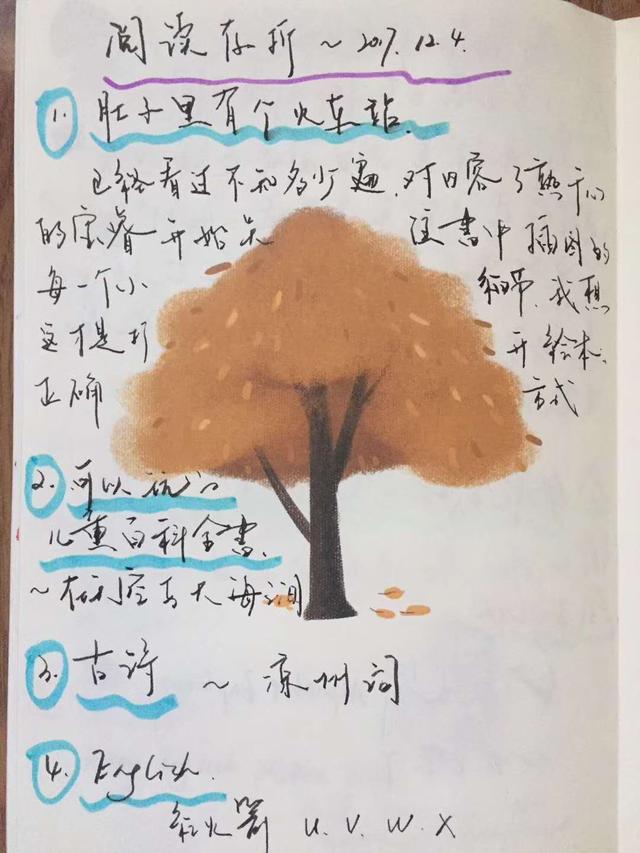 阅读存折 ~ 2017.12.4.
1. 肚子里有个火车站.
已经看过不知多少遍,对内容了熟于心
的宝睿开始关注书中插图的
每一个小细节,我想
这才是打开绘本
正确方式
2. 可以玩的
儿童百科全书.
~ 在利 与大海洞
3. 古诗 ~ 凉州词
4. English.
红火箭 U. V. W. X